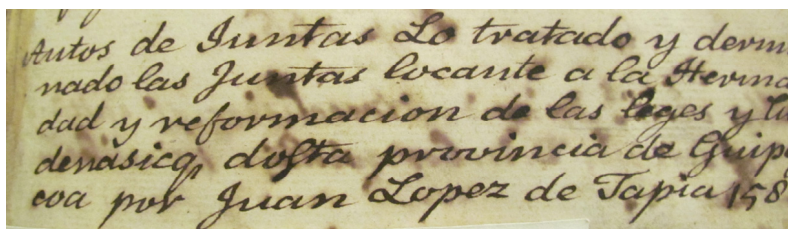 Autos de Juntas Lo tratado y dermi
nado las Juntas tocante a la Herma
dad y reformacion de las leges y
dosta provincia de Guipu
coa por Juan Lopez de Tapia 158